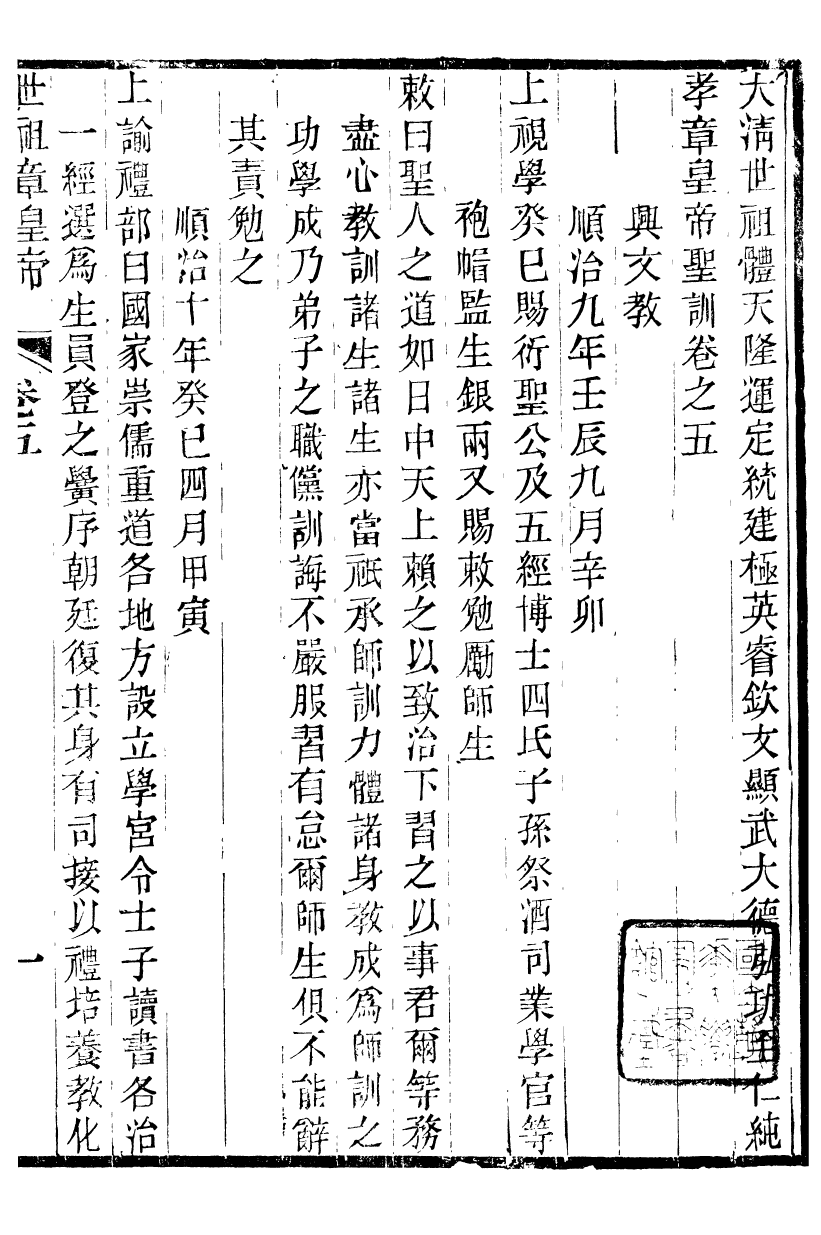 大清世祖體天隆運定統建極英睿欽文顯武大德弘功至仁純
孝章皇帝聖訓卷之五
興文教
順治九年壬辰九月辛卯
上視學癸巳賜衍聖公及五經博士四氏子孫祭酒司業學官等
袍帽監生銀兩又賜敕勉勵師生
敕曰聖人之道如日中天上賴之以致治下習之以事君爾等務
盡心教訓諸生諸生亦當祇承師訓力體諸身教成爲師訓之
功學成乃弟子之職儻訓誨不嚴服習有怠爾師生俱不能辭
其責勉之
順治十年癸巳四月甲寅
上諭禮部曰國家崇儒重道各地方設立學宮令士子讀書各治
一經選爲生員登之黌序朝廷復其身有司接以禮培養教化
世祖章皇帝 卷五 一